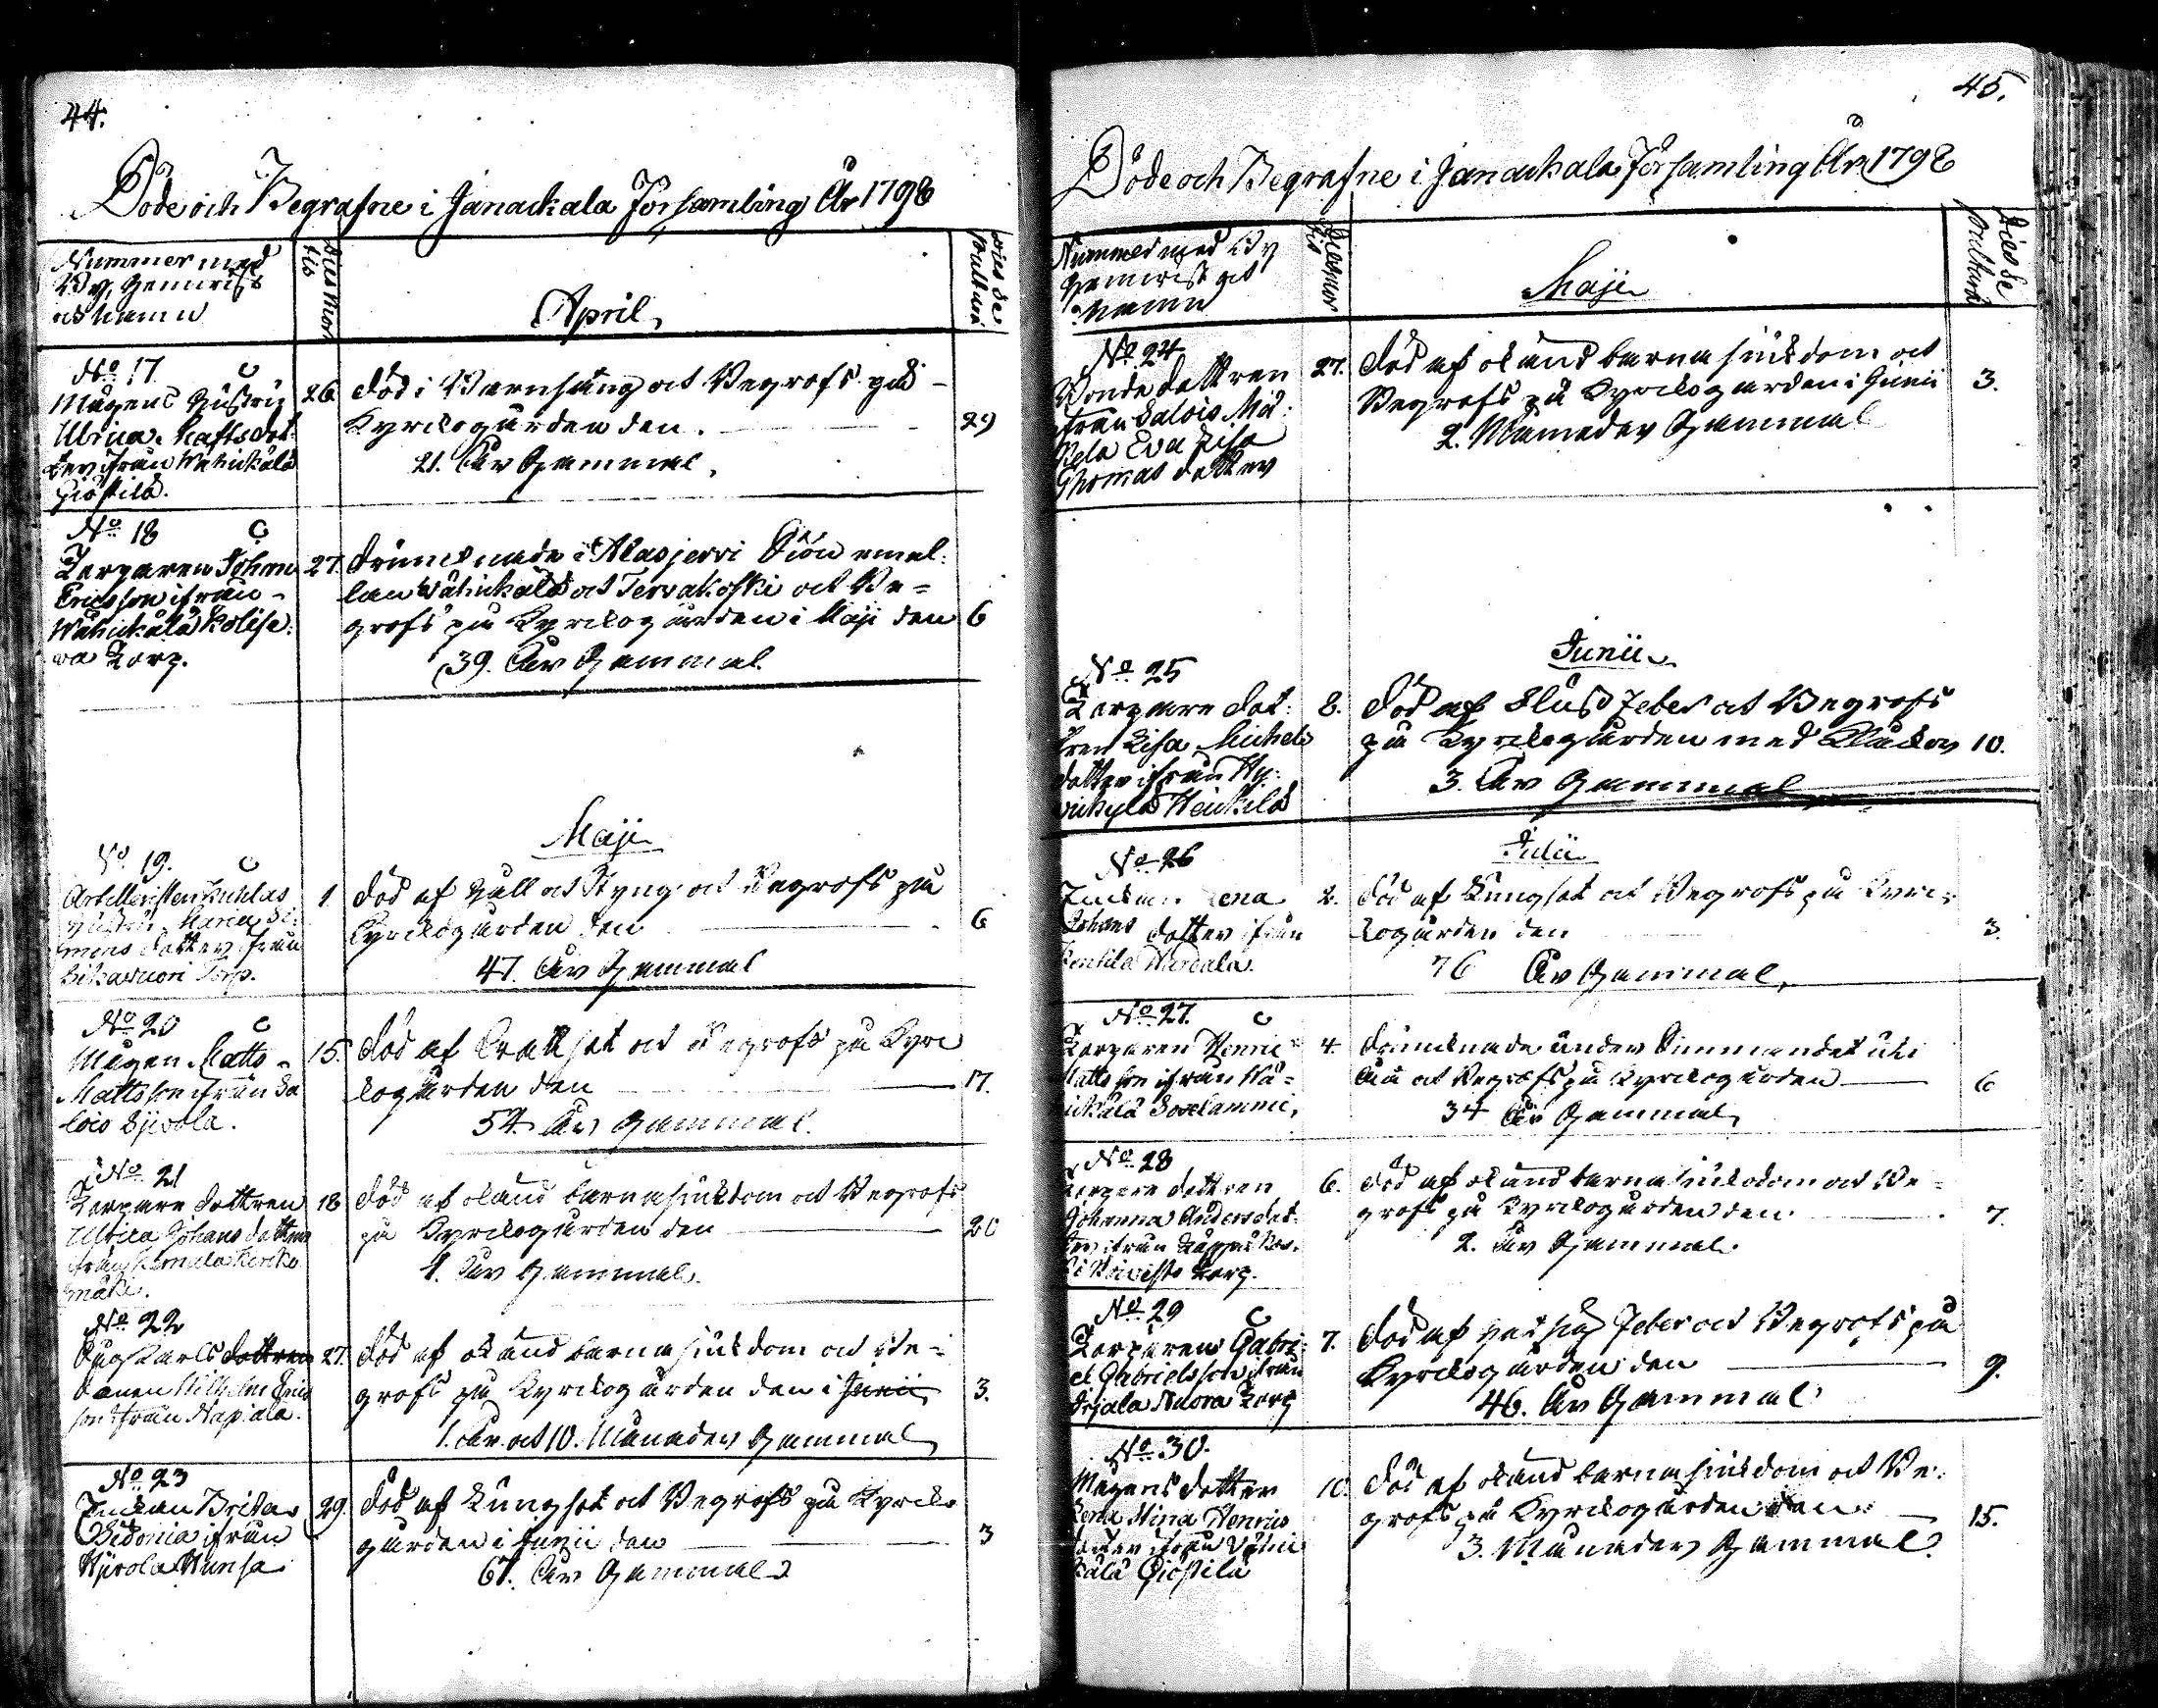 44.
Döde och Begrafne i Janackala Församling År 1798
Nummer med
By, Hemvist
och Namn
Dies mor
tis
April
Dies Se
pulturæ
No 17.
Mågens hustru
Ulrica Mattsdot
ter ifrån Wähickälä
Siöstilä.
26.
död i Barnsäng och Begrofs på
Kyrckogården den
21. År Gammal.
29
No 18
Torparen Johan
Ericsson ifrån
Wähickälä Kolisе
va Torp.
27.
drunknade i Alasjervi Siön emel:
lan Wähickälä och Tervakoski och Be=
grofs på Kyrckogården i Maji den
39. År Gammal
6
Maji
No 19.
Artilleristen
hustru Maria Si
mons dotter ifrån
Torp.
1.
död af håll och styng och Begrofs på
Kyrckogården den
47. År Gammal
6
No 20
Mågen Matts
Mattsson ifrån Sa
lois Syvola.
15.
död af och Begrofs på Kyrc
kogården den
54. År Gammal.
17.
No 21
Torpare dottren
Ulrica Johans dotter
ifrån Kernala Kircko
mäki.
18
död af okänd barnasiukdom och Begrofs
på Kyrckogården den
1. År Gammal.
20
No 22
dottren
sonen Wilhelm Eric
son ifrån Napiala.
27.
död af okänd barna siukdom och Be=
grofs på Kyrckogården den i Junii
1. År och 10. Månader Gammal
3.
No 23
Enckan Brita
Sidonia ifrån
Hyvola Hansa
29.
död af Lungsot och Begrofs på Kyrcko
gården i Junii den
67. År Gammal
3
45.
Döde och Begrafne i Janackala Församling År 1798
Nummer med By
Hemvist och
Namn
Dies mor
tis
Maji
Dies Se
pulturæ
No 24
Bonde dottren
ifrån Salois Mä:
kelä Eva Lisa
Thomas dotter
27.
död af okänd barna siukdom och
Begrofs på Kyrckogården i Junii
2. Månader Gammal
3.
Junii
No 25
Torpare dot:
tren Lisa Michels
dotter ifrån Hy:
vickylä Heickilä
8.
död af Feber och Begrofs
på Kyrckogården med Klåckor
3. År Gammal
10.
Julii
No 26
Enckan Lena
Johans dotter ifrån
2.
död af Lungsot och Begrofs på Kyrc=
kogården den
76 År Gammal
3.
No 27.
Torparen Henric
Mattsson ifrån Wä=
hickälä
4.
drunknade under Simmandet uti
Åa och Begrofs på Kyrckogården
34 År Gammal
6
No 28
Torpare dottren
Johanna Andersdot
ter ifrån
Torp.
6.
död af okänd barna siukdom och Be=
grofs på Kyrckogården den
2. År Gammal.
7.
No 29
Torparen Gabri
el Gabrielsson ifrån
Torp
7.
död af hetsig Feber och Begrofs på
Kyrckogården den
46. År Gammal
9.
No 30.
Mågens dotter
Lena Stina Henrics
dotter ifrån Vähic
kälä Siöstilä
10.
död af okänd barna siukdom och Be:
grofs på Kyrckogården den
3. Månader Gammal
15.